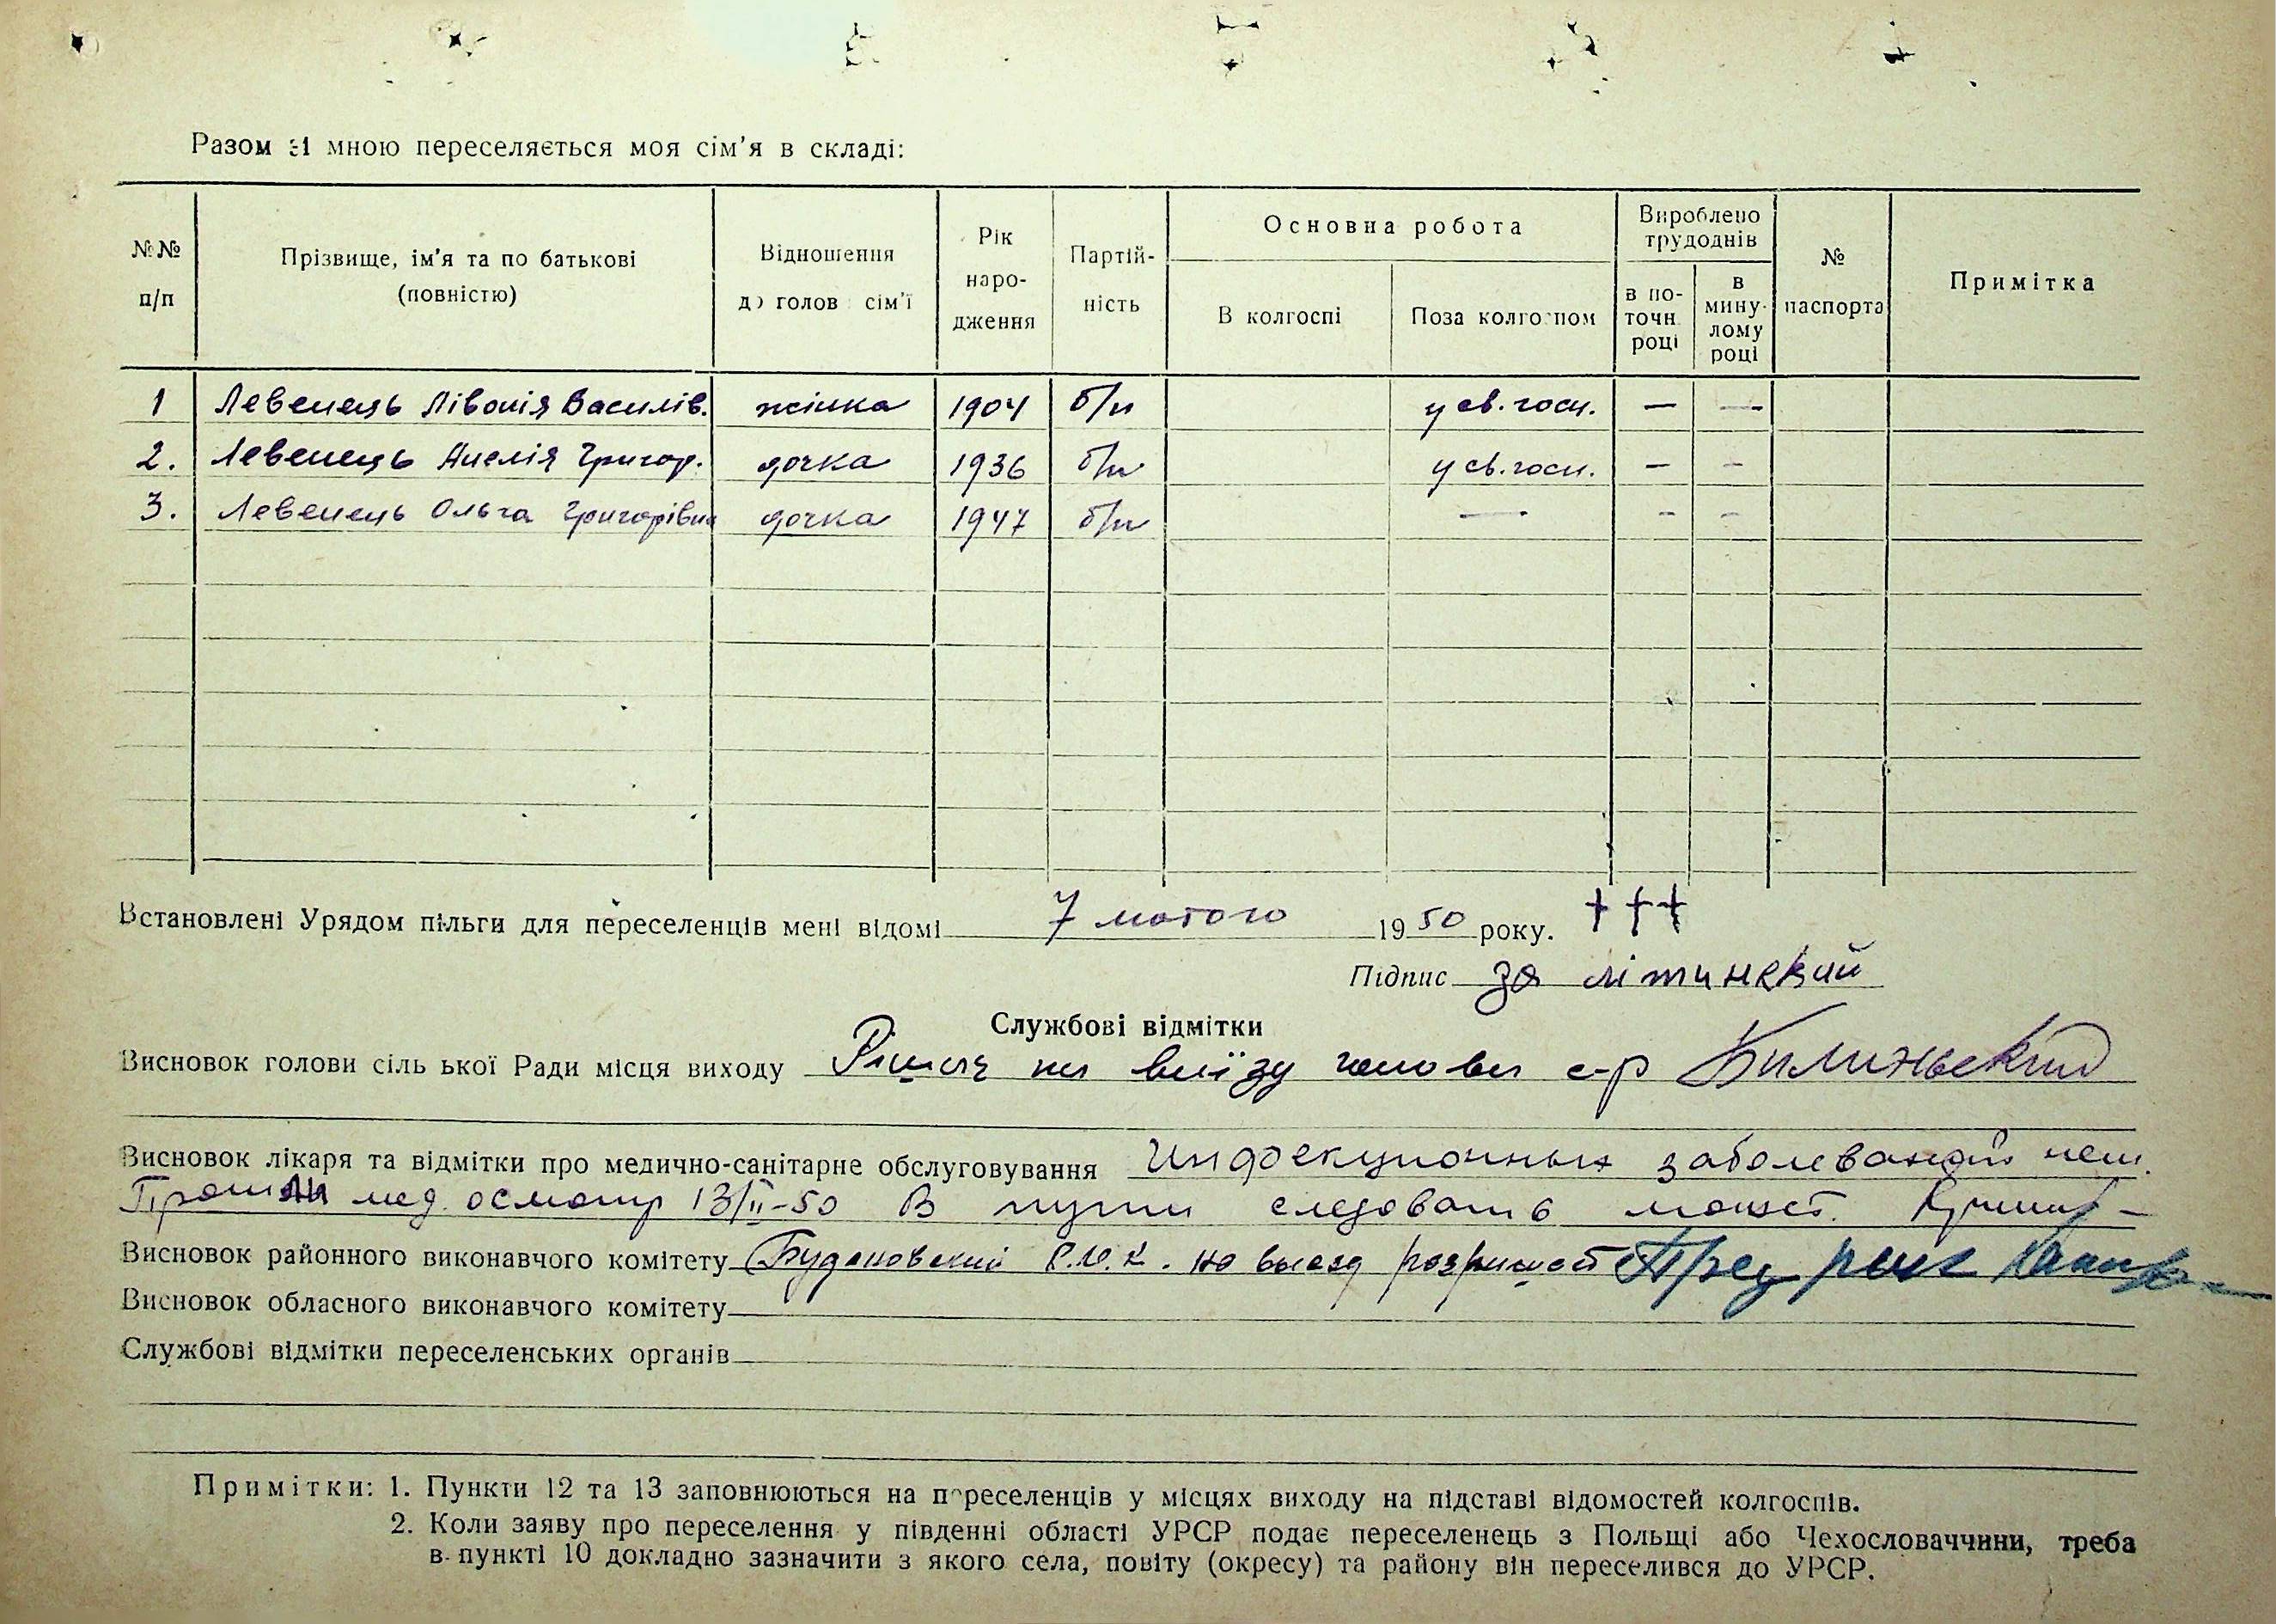 Разом зі мною переселяється моя сім'я в складі:
№№ п/п | Прізвище, ім'я та по батькові (повністю) | Відношення до голов сім'ї | Рік народження | Партійність | Основна робота | Вироблено трудоднів | № паспорта | Примітка
В колгоспі | Поза колгоспом | в поточн. році | в минулому році
1 Левенець Лівонія Василів. жінка 1904 б/п у св. госп. — —
2. Левенець Анелія Григор. дочка 1936 б/п у св. госп. — —
3. Левенець Ольга Григорівна дочка 1947 б/п — — —
Встановлені Урядом пільги для переселенців мені відомі 7 лютого 1950 року. +++
Підпис за Літинский
Службові відмітки
Висновок голови сільської Ради місця виходу на виїзду голова с-р
Висновок лікаря та відмітки про медично-санітарне обслуговування Инфекционных заболеваний нет.
Прошли мед. осмотр 13/II-50 В пути следовать может.
Висновок районного виконавчого комітету Будановский Р.И.К. на выезд Пред рик
Висновок обласного виконавчого комітету
Службові відмітки переселенських органів
Примітки: 1. Пункти 12 та 13 заповнюються на переселенців у місцях виходу на підставі відомостей колгоспів.
2. Коли заяву про переселення у південні області УРСР подає переселенець з Польщі або Чехословаччини, треба
в пункті 10 докладно зазначити з якого села, повіту (окресу) та району він переселився до УРСР.